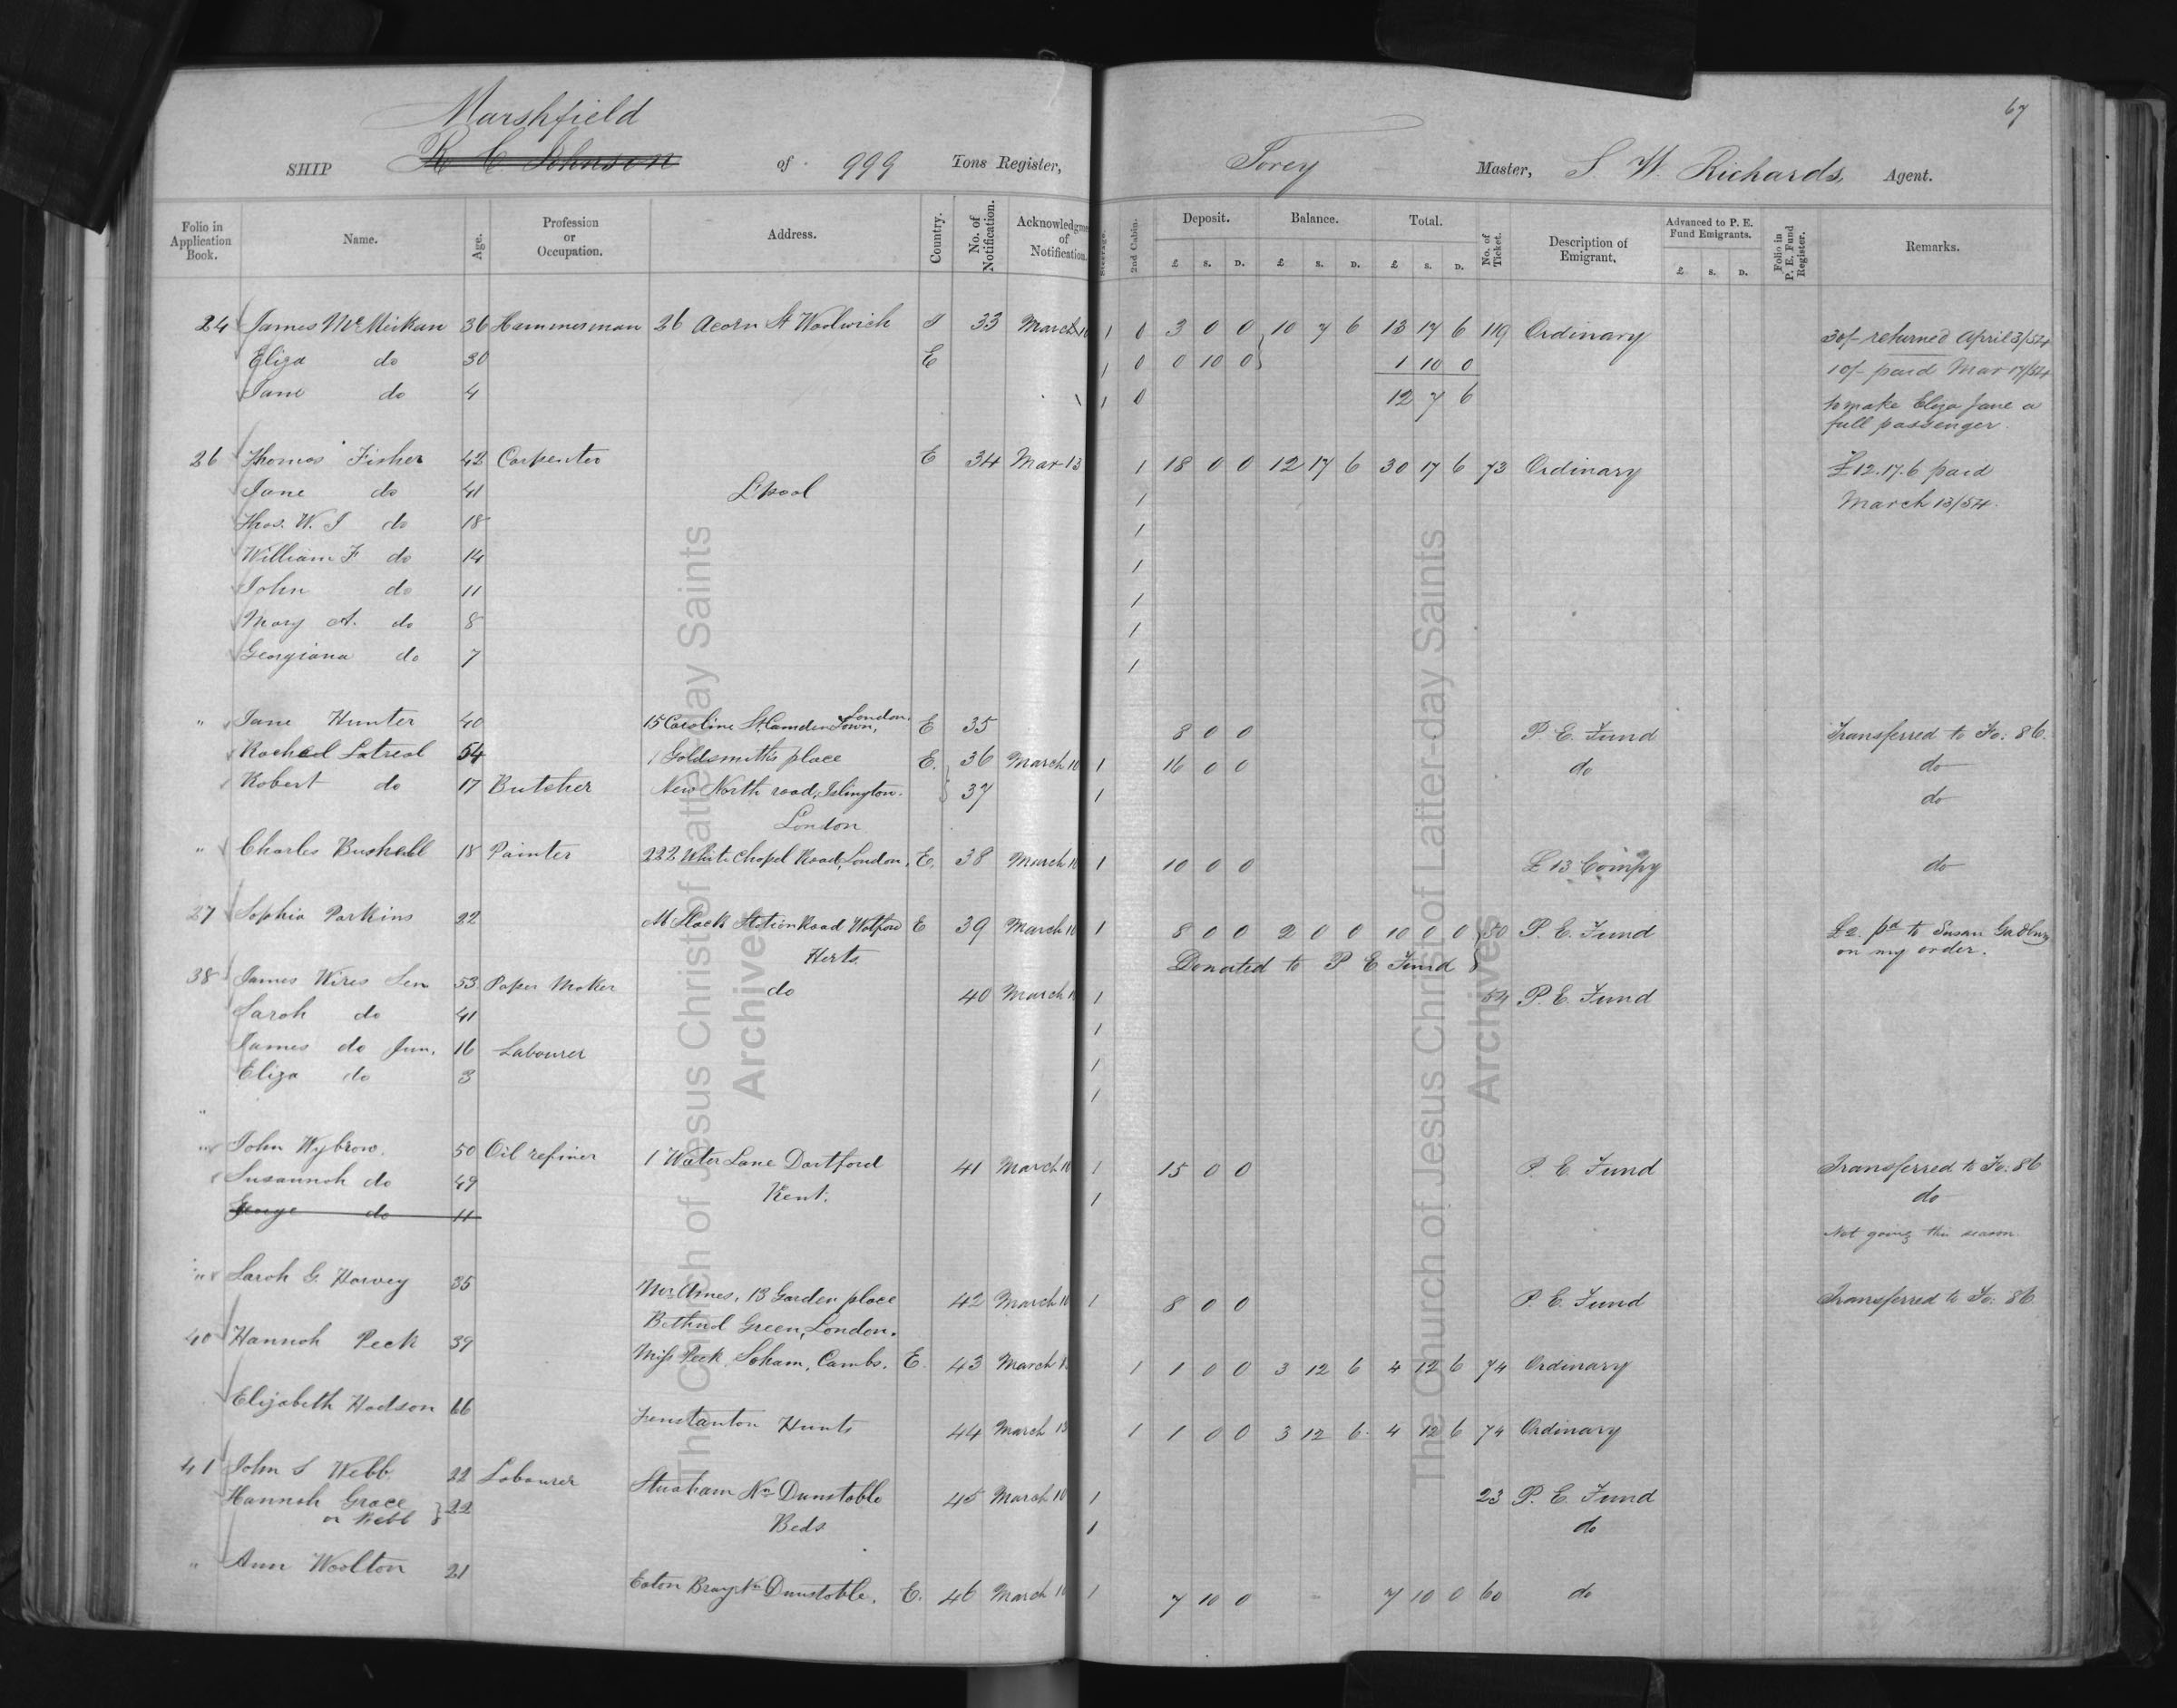 67
Marshfield
SHIP R C Johnson of 999 Tons Register, Torey Master, S. W. Richards, Agent.
Folio in Application Book. Name. Age. Profession or Occupation. Address. Country. No. of Notification. Acknowledgme of Notification. Steerage. 2nd Cabin. Deposit. £ s. D. Balance. £ s. D. Total. £ s. D. No. of Ticket. Description of Emigrant. Advanced to P. E. Fund Emigrants. £ s. D. Folio in P. E. Fund Register. Remarks.
24 James McMickan 36 Hammerman 26 Acorn St Woolwich 33 March 10 1 0 3 0 0 10 7 6 13 17 6 119 Ordinary 30/- returned April 3/54
Eliza do 30 E 1 0 0 10 0 1 10 0 10/- paid Mar 17/54
Jane do 4 1 0 12 7 6 to make Eliza Jane a
full passenger.
26 Thomas Fisher 42 Carpenter E 34 Mar 13 1 18 0 0 12 17 6 30 17 6 73 Ordinary £12.17.6 paid
Jane do 41 L'pool 1 March 13/54.
Thos. W. J do 18 1
William F do 14 1
John do 11 1
Mary A. do 8 1
Georgiana do 7 1
" Jane Hunter 40 15 Caroline St, Camden Town, London. E 35 8 0 0 P. E. Fund Transferred to Fo: 86.
Rachael Latreal 54 1 Goldsmith's place E. 36 March 10 1 16 0 0 do do
Robert do 17 Butcher New North road, Islington. 37 1 do
London
" Charles Bushell 18 Painter 222 White Chapel Road, London, E. 38 March 10 1 10 0 0 £13 Compy do
27 Sophia Parkins 22 M Slack Station Road Watford E 39 March 10 1 8 0 0 2 0 0 10 0 0 50 P. E. Fund £2. pd to Susan Gadbury
Herts. Donated to P E Fund on my order.
38 James Wires Sen 53 Paper Maker do 40 March 1 54 P. E. Fund
Sarah do 41 1
James do Jun. 16 Labourer 1
Eliza do 3 1
"
" John Wybrow. 50 Oil refiner 1 Water Lane Dartford 41 March 10 1 15 0 0 P. E. Fund Transferred to Fo: 86
Susannah do 49 Kent. 1 do
George do 11 Not going this season.
" Sarah G. Harvey 35 Mr Ames, 13 Garden place 42 March 10 1 8 0 0 P. E. Fund Transferred to Fo: 86
Bethnal Green, London.
40 Hannah Peck 39 Miss Peck, Soham, Cambs. E. 43 March 1 1 0 0 3 12 6 4 12 6 74 Ordinary
Elizabeth Hodson 66 Fenstanton Hunts 44 March 13 1 1 0 0 3 12 6 4 12 6 74 Ordinary
41 John S Webb. 22 Labourer Studham Nr Dunstable 45 March 10 1 23 P. E. Fund
Hannah Grace 22 Beds 1 do
or Webb
" Ann Woolton 21 Eaton Bray Nr Dunstable, E. 46 March 10 1 7 10 0 7 10 0 60 do
The Church of Jesus Christ of Latter-day Saints
Archives
The Church of Jesus Christ of Latter-day Saints
Archives